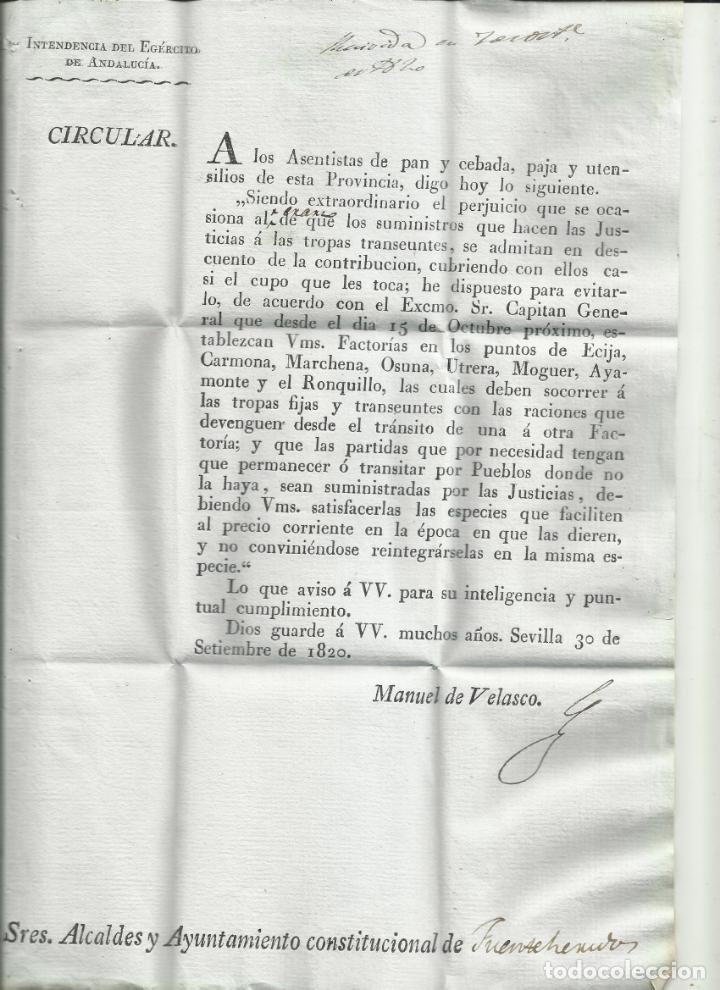 INTENDENCIA DEL EGÉRCITO
DE ANDALUCÍA.
en
CIRCULAR.
A los Asentistas de pan y cebada, paja y uten-
silios de esta Provincia, digo hoy lo siguiente.
„Siendo extraordinario el perjuicio que se oca-
siona al erario de que los suministros que hacen las Jus-
ticias á las tropas transeuntes, se admitan en des-
cuento de la contribucion, cubriendo con ellos ca-
si el cupo que les toca; he dispuesto para evitar-
lo, de acuerdo con el Excmo. Sr. Capitan Gene-
ral que desde el dia 15 de Octubre próximo, es-
tablezcan Vms. Factorías en los puntos de Ecija,
Carmona, Marchena, Osuna, Utrera, Moguer, Aya-
monte y el Ronquillo, las cuales deben socorrer á
las tropas fijas y transeuntes con las raciones que
devenguen desde el tránsito de una á otra Fac-
toría; y que las partidas que por necesidad tengan
que permanecer ó transitar por Pueblos donde no
la haya, sean suministradas por las Justicias, de-
biendo Vms. satisfacerlas las especies que faciliten
al precio corriente en la época en que las dieren,
y no conviniéndose reintegrárselas en la misma es-
pecie.“
Lo que aviso á VV. para su inteligencia y pun-
tual cumplimiento.
Dios guarde á VV. muchos años. Sevilla 30 de
Setiembre de 1820.
Manuel de Velasco.
Sres. Alcaldes y Ayuntamiento constitucional de Fuenteheridos
todocoleccion